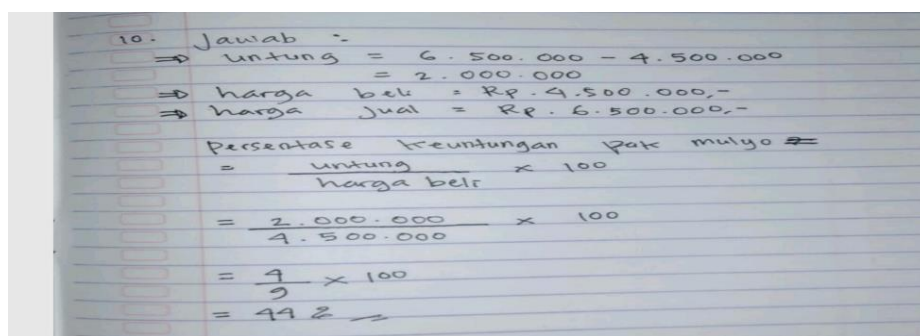 10. Jawab :-
⇒ untung = 6.500.000 - 4.500.000
= 2.000.000
⇒ harga beli = Rp. 4.500.000,-
⇒ harga Jual = Rp. 6.500.000,-
Persentase keuntungan pak mulyo =
= untung / harga beli × 100
= 2.000.000 / 4.500.000 × 100
= 4/9 × 100
= 44 %